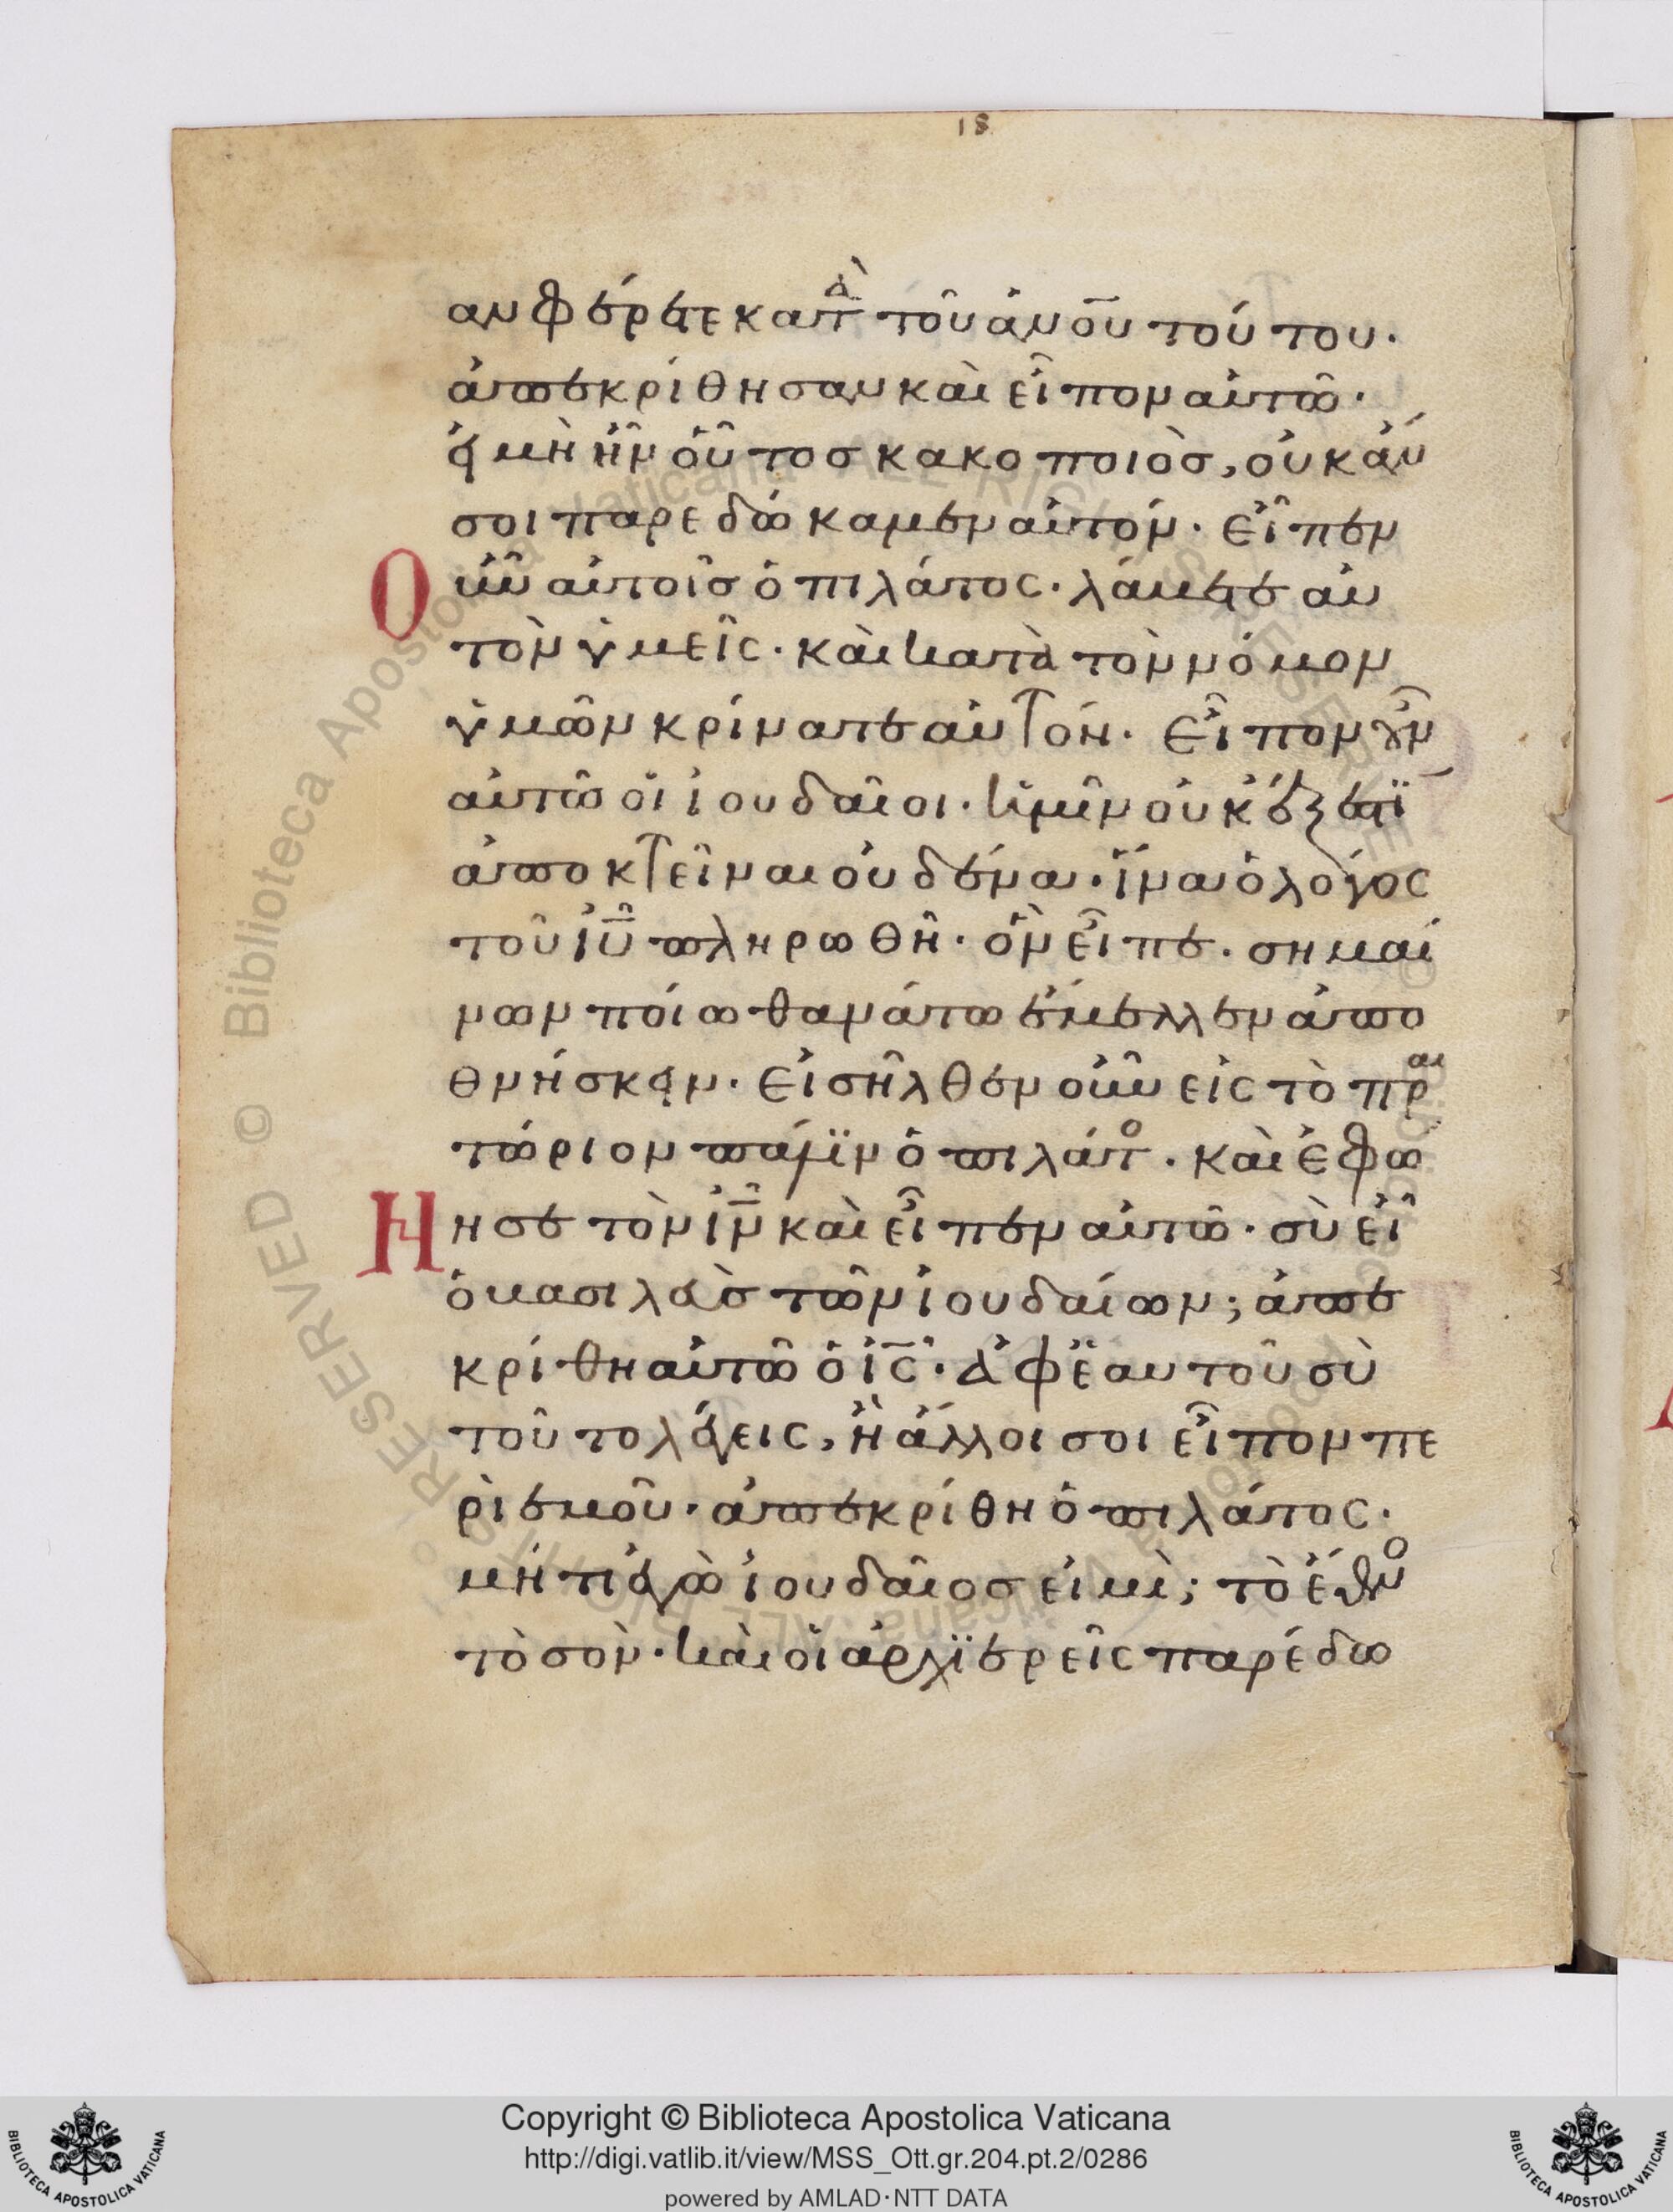 18
αν φέρετε κατὰ τοῦ ἀνου τούτου·
ἀπεκρίθησαν καὶ εἶπον αὐτῶ·
εἰ μὴ ἦν οὗτοσ κακοποιὸσ, οὐκ ἄν
σοι παρεδώκαμεν αὐτόν· Εἶπεν
Οὖν αὐτοῖσ ὁ πιλάτος· λάβετε αὐ
τὸν ὑμεῖς· καὶ κατὰ τὸν νόμον
ὑμῶν κρίνατε αὐτόν· Εἶπον οὖν
αὐτῶ οἱ ἰουδαῖοι· ἡμῖν οὐκ ἔξεστϊ
ἀποκτεῖναι οὐδένα· ἵνα ὁ λόγος
τοῦ ἰῦ πληρωθῆ· ὃν εἶπε· σημαί
νων ποίω θανάτω ἔμελλεν ἀπο
θνήσκειν· Εἰσῆλθεν οὖν εἰς τὸ πραι
τώριον πάλϊν ὁ πιλάτο· καὶ ἐφώ
Νησε τὸν ἰν καὶ εἶπεν αὐτῶ· σὺ εἶ
ὁ βασιλεὺσ τῶν ἰουδαίων; ἀπε
κρίθη αὐτῶ ὁ ἰς· ἀφ ἑαυτοῦ σὺ
τοῦτο λέγεις, ἢ ἄλλοι σοι εἶπον πε
ρὶ ἐμοῦ· ἀπεκρίθη ὁ πιλάτος·
μήτι ἐγὼ ἰουδαῖοσ εἰμὶ; τὸ ἔθνο
τὸ σὸν· καὶ οἱ ἀρχϊερεῖς παρέδω
Copyright © Biblioteca Apostolica Vaticana
http://digi.vatlib.it/view/MSS_Ott.gr.204.pt.2/0286
powered by AMLAD·NTT DATA
BIBLIOTECA APOSTOLICA VATICANA
BIBLIOTECA APOSTOLICA VATICANA